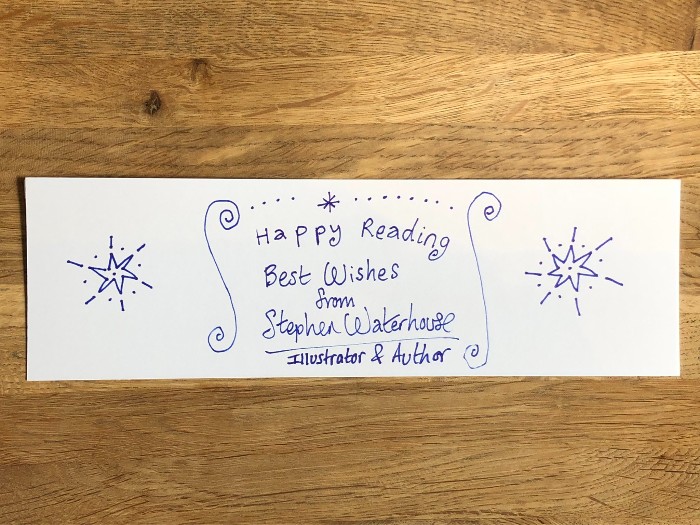 Happy Reading
Best Wishes
from
Stephen Waterhouse
Illustrator & Author